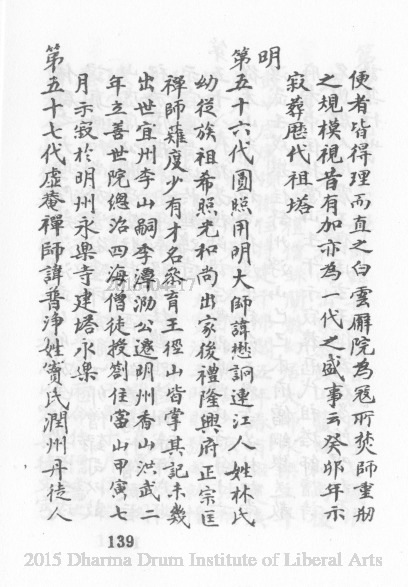 使者皆得理而直之白雲廨院為冦所焚師重刱
之規模視昔有加亦為一代之盛事云癸夘年示
寂葬歴代祖塔
明
第五十六代圓照用明大師諱懋詗連江人姓林氏
幼從族祖希照光和尚出家後禮隆興府正宗匡
禪師薙度少有才名叅育王徑山皆掌其記未幾
出世宜州李山嗣季潭泐公遷明州香山洪武二
年立善世院總治四海僧徒授劄住薑山甲寅七
月示寂於明州永樂寺建塔永樂
第五十七代虚菴禪師諱普淨姓竇氏潤州丹徒人
139
2015 Dharma Drum Institute of Liberal Arts